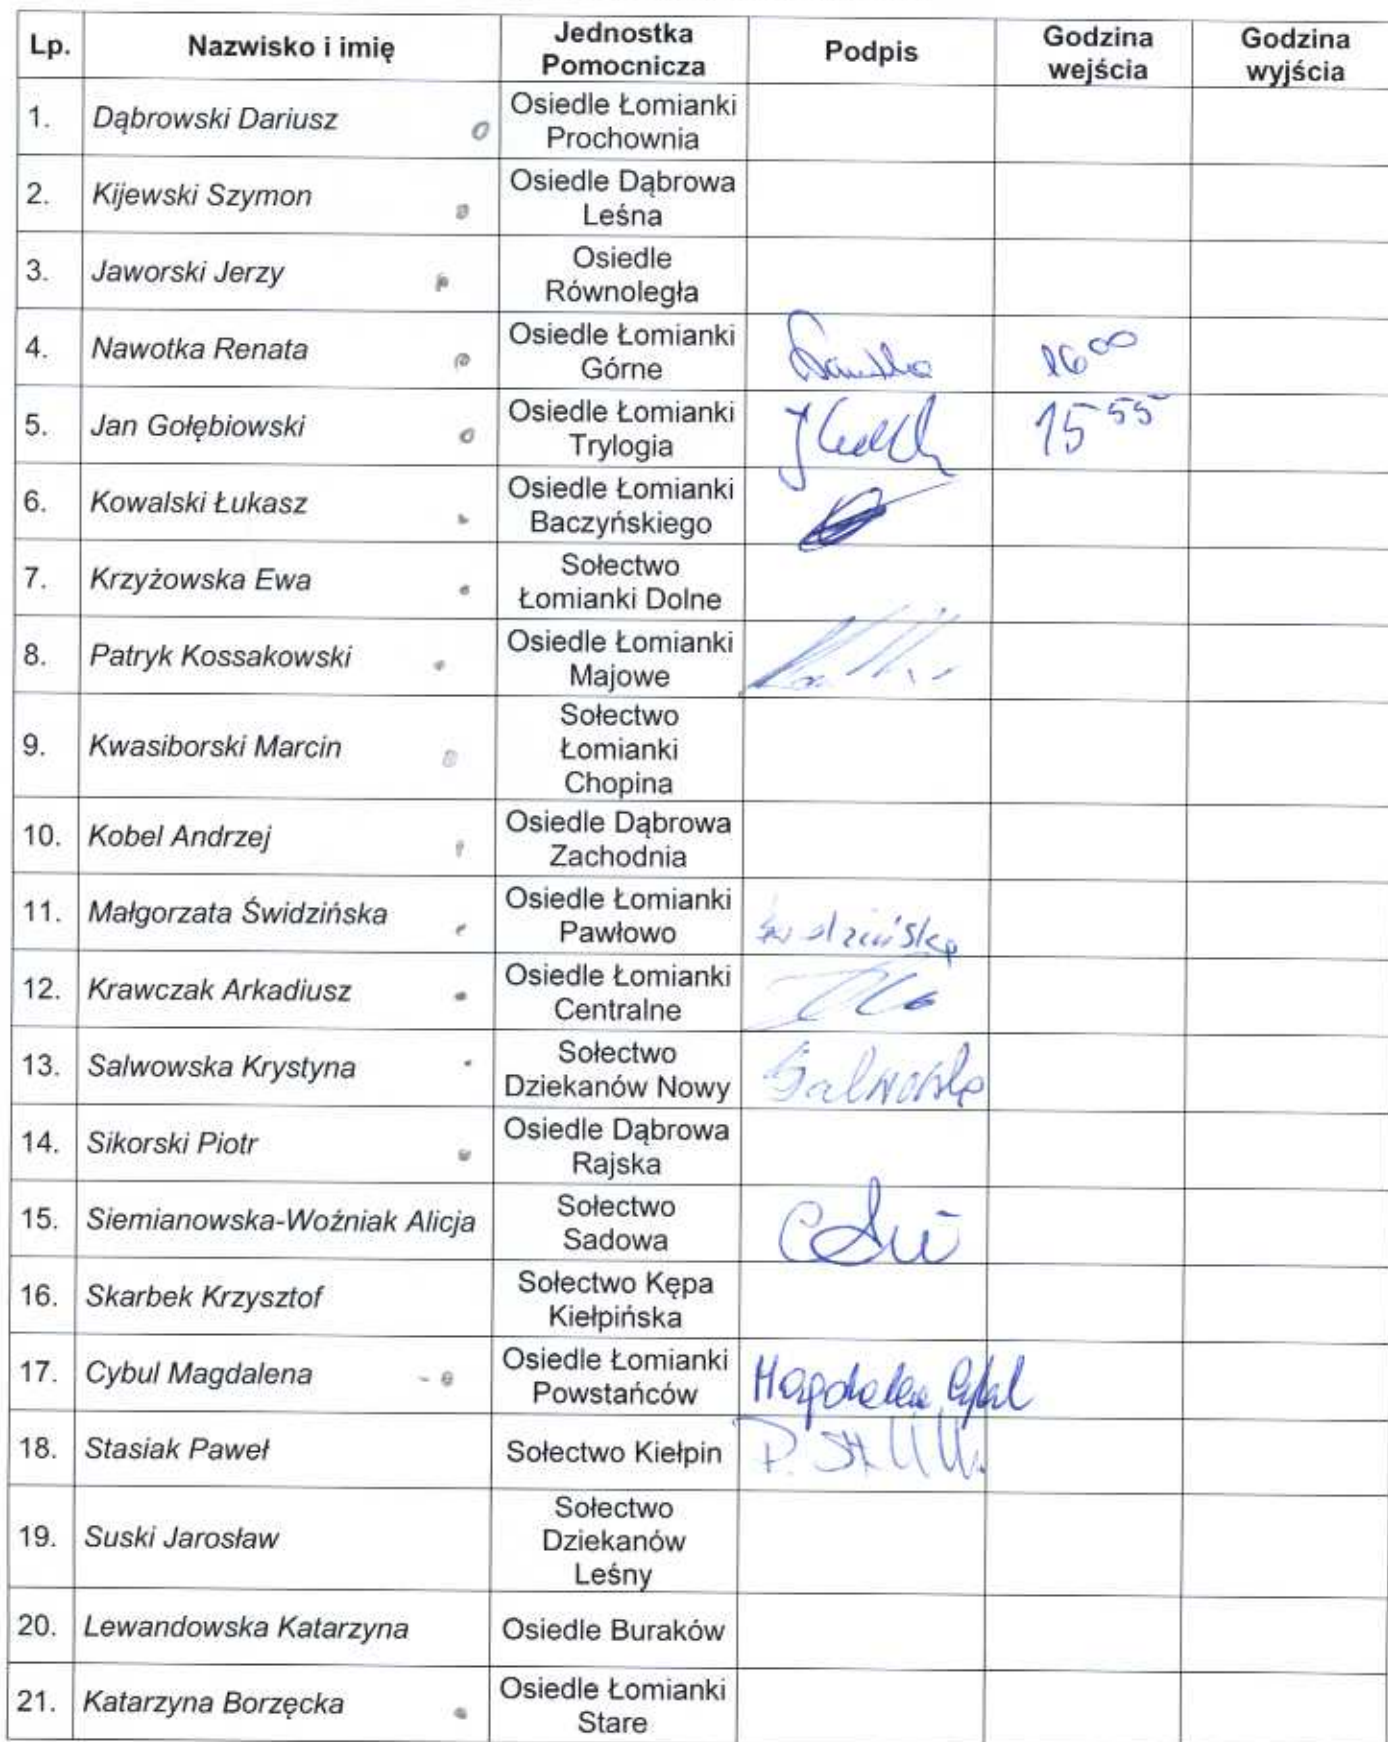 Lp. Nazwisko i imię Jednostka Pomocnicza Podpis Godzina wejścia Godzina wyjścia
1. Dąbrowski Dariusz Osiedle Łomianki Prochownia
2. Kijewski Szymon Osiedle Dąbrowa Leśna
3. Jaworski Jerzy Osiedle Równoległa
4. Nawotka Renata Osiedle Łomianki Górne 16 00
5. Jan Gołębiowski Osiedle Łomianki Trylogia 15 55
6. Kowalski Łukasz Osiedle Łomianki Baczyńskiego
7. Krzyżowska Ewa Sołectwo Łomianki Dolne
8. Patryk Kossakowski Osiedle Łomianki Majowe
9. Kwasiborski Marcin Sołectwo Łomianki Chopina
10. Kobel Andrzej Osiedle Dąbrowa Zachodnia
11. Małgorzata Świdzińska Osiedle Łomianki Pawłowo
12. Krawczak Arkadiusz Osiedle Łomianki Centralne
13. Salwowska Krystyna Sołectwo Dziekanów Nowy Salwowska
14. Sikorski Piotr Osiedle Dąbrowa Rajska
15. Siemianowska-Woźniak Alicja Sołectwo Sadowa
16. Skarbek Krzysztof Sołectwo Kępa Kiełpińska
17. Cybul Magdalena Osiedle Łomianki Powstańców Magdalena Cybul
18. Stasiak Paweł Sołectwo Kiełpin
19. Suski Jarosław Sołectwo Dziekanów Leśny
20. Lewandowska Katarzyna Osiedle Buraków
21. Katarzyna Borzęcka Osiedle Łomianki Stare